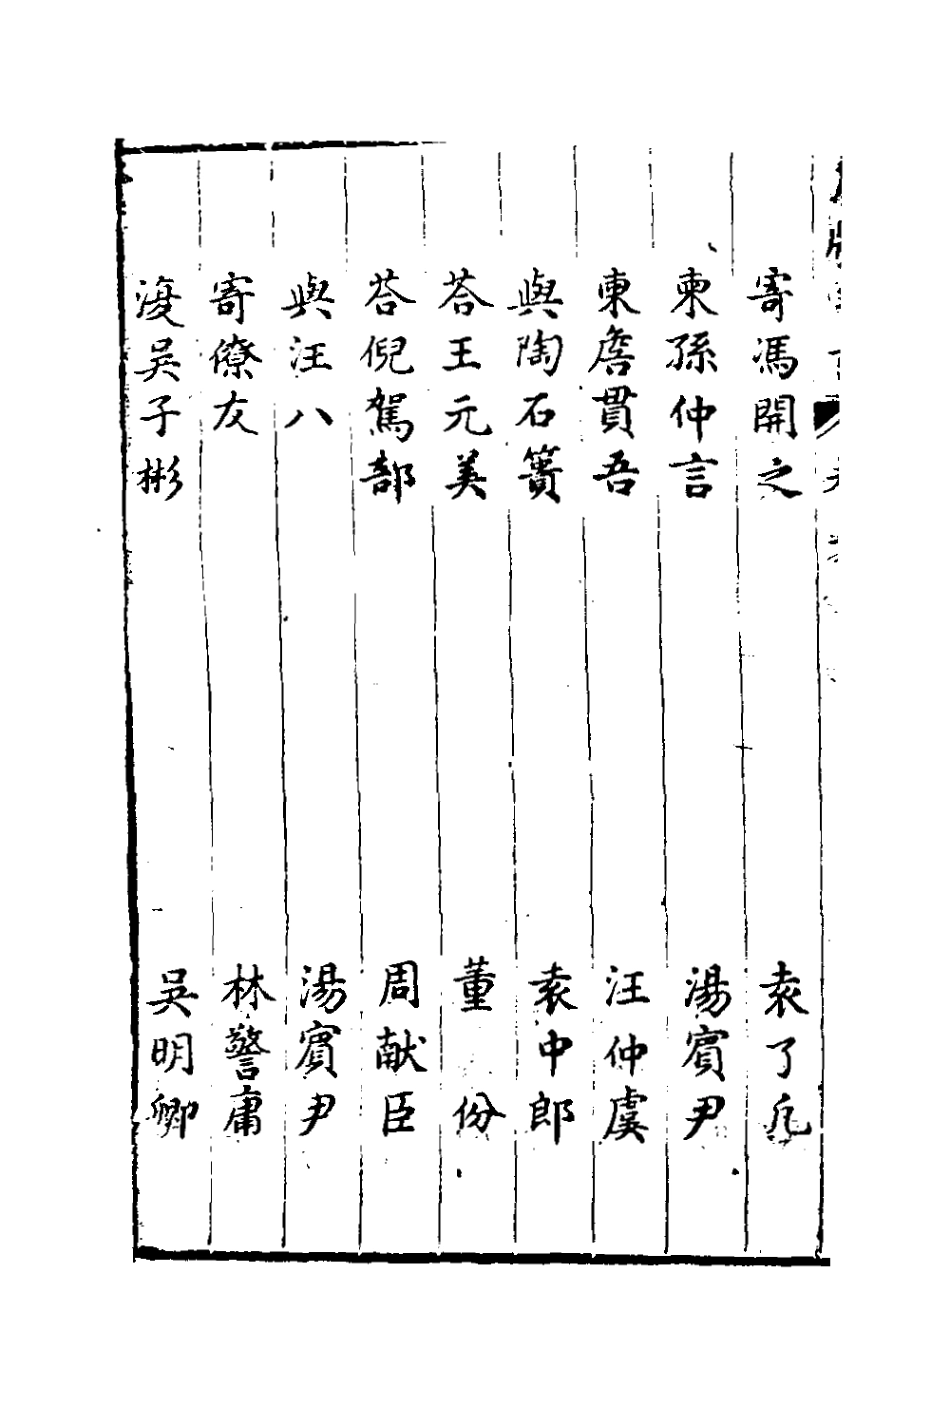 寄馮開之　袁了凡
柬孫仲言　湯賓尹
柬詹貫吾　汪仲虞
與陶石簣　袁中郎
荅王元美　董份
荅倪駕部　周献臣
與汪八　湯賓尹
寄僚友　林警庸
復吳子彬　吳明卿